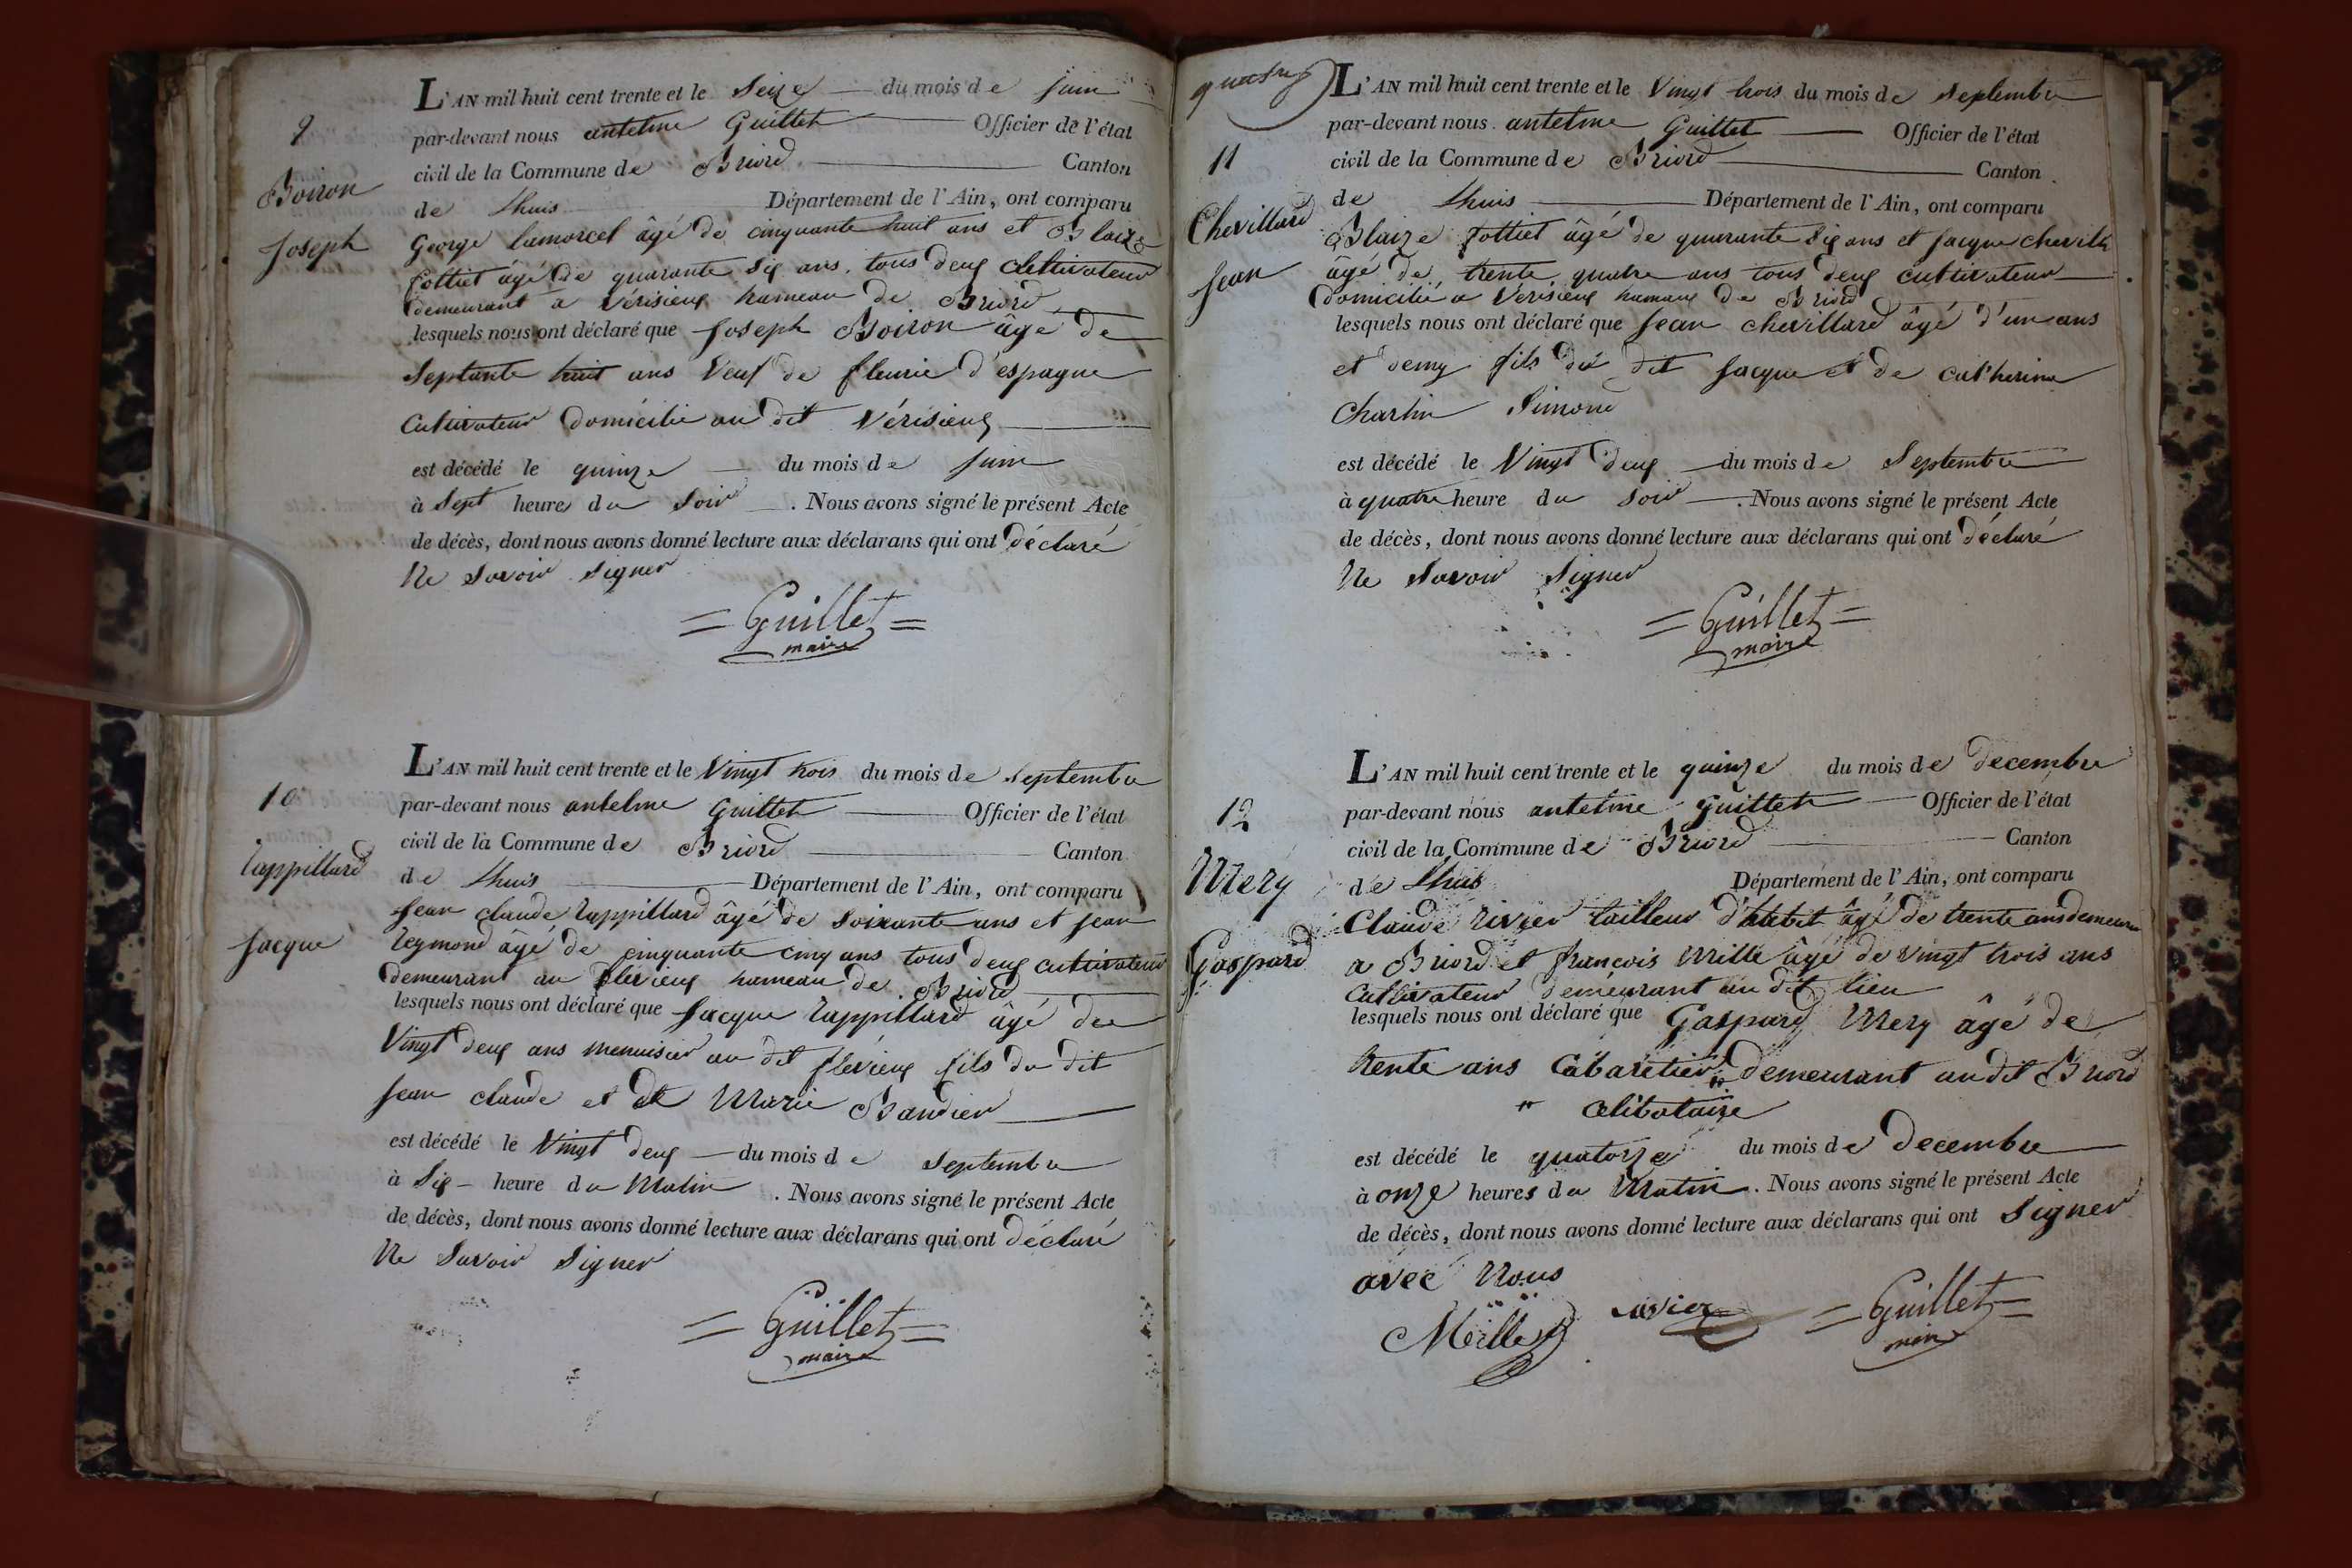 9
Boiron
Joseph
L'AN mil huit cent trente et le Seize du mois de juin
par-devant nous antelme Guillet Officier de l'état
civil de la Commune de Briord Canton
de Lhuis Département de l'Ain, ont comparu
George lamorcel âgé de cinquante huit ans et Blaize
Jottiet âgé de quarante six ans, tous deux Cultivateur
demeurant a Vérisieux hameau de Briord
lesquels nous ont déclaré que Joseph Boiron âgé de
Septante huit ans Veuf de fleurie d'espagne
Cultivateur domicilié au dit Vérisieux
est décédé le quinze du mois de juin
à Sept heures du Soir. Nous avons signé le présent Acte
de décès, dont nous avons donné lecture aux déclarans qui ont déclaré
Ne Savoir Signer
= Guillet =
maire
10
Rappillard
Jacque
L'AN mil huit cent trente et le Vingt trois du mois de Septembre
par-devant nous antelme Guillet Officier de l'état
civil de la Commune de Briord Canton
de Lhuis Département de l'Ain, ont comparu
Jean claude Rappillard âgé de Soixante ans et Jean
Reymond âgé de cinquante cinq ans tous deux cultivateur
demeurant au flévieux hameau de Briord
lesquels nous ont déclaré que Jacque Rappillard âgé de
Vingt deux ans menuisier au dit flévieux fils du dit
Jean claude et de Marie Baudier
est décédé le Vingt deux du mois de Septembre
à Six heure du Matin. Nous avons signé le présent Acte
de décès, dont nous avons donné lecture aux déclarans qui ont déclaré
Ne Savoir Signer
= Guillet =
maire
quatre
11
Chevillard
Jean
L'AN mil huit cent trente et le Vingt trois du mois de Septembre
par-devant nous antelme Guillet Officier de l'état
civil de la Commune de Briord Canton
de Lhuis Département de l'Ain, ont comparu
Blaize Jottiet âgé de quarante Six ans et Jacque chevill
âgé de trente quatre ans tous deux cultivateur
domicilié a Vérisieux hamaux de Briord
lesquels nous ont déclaré que Jean chevillard âgé d'un ans
et demy fils du dit Jacque et de catherine
Charlin Simond
est décédé le Vingt deux du mois de Septembre
à quatre heure du Soir. Nous avons signé le présent Acte
de décès, dont nous avons donné lecture aux déclarans qui ont déclaré
Ne Savoir Signer
= Guillet =
maire
12
Mery
Gaspard
L'AN mil huit cent trente et le quinze du mois de decembre
par-devant nous antelme Guillet Officier de l'état
civil de la Commune de Briord Canton
de Lhuis Département de l'Ain, ont comparu
Claude Rivier tailleur d'habit âgé de trente ans demeurn
a Briord et françois Mille âgé de Vingt trois ans
Cultivateur demeurant au dit lieu
lesquels nous ont déclaré que Gaspard Mery âgé de
trente ans Cabaretier " demeurant au dit Briord
" célibataire
est décédé le quatorze du mois de decembre
à onze heures du Matin. Nous avons signé le présent Acte
de décès, dont nous avons donné lecture aux déclarans qui ont Signer
avec Nous
Mille rivier = Guillet =
maire